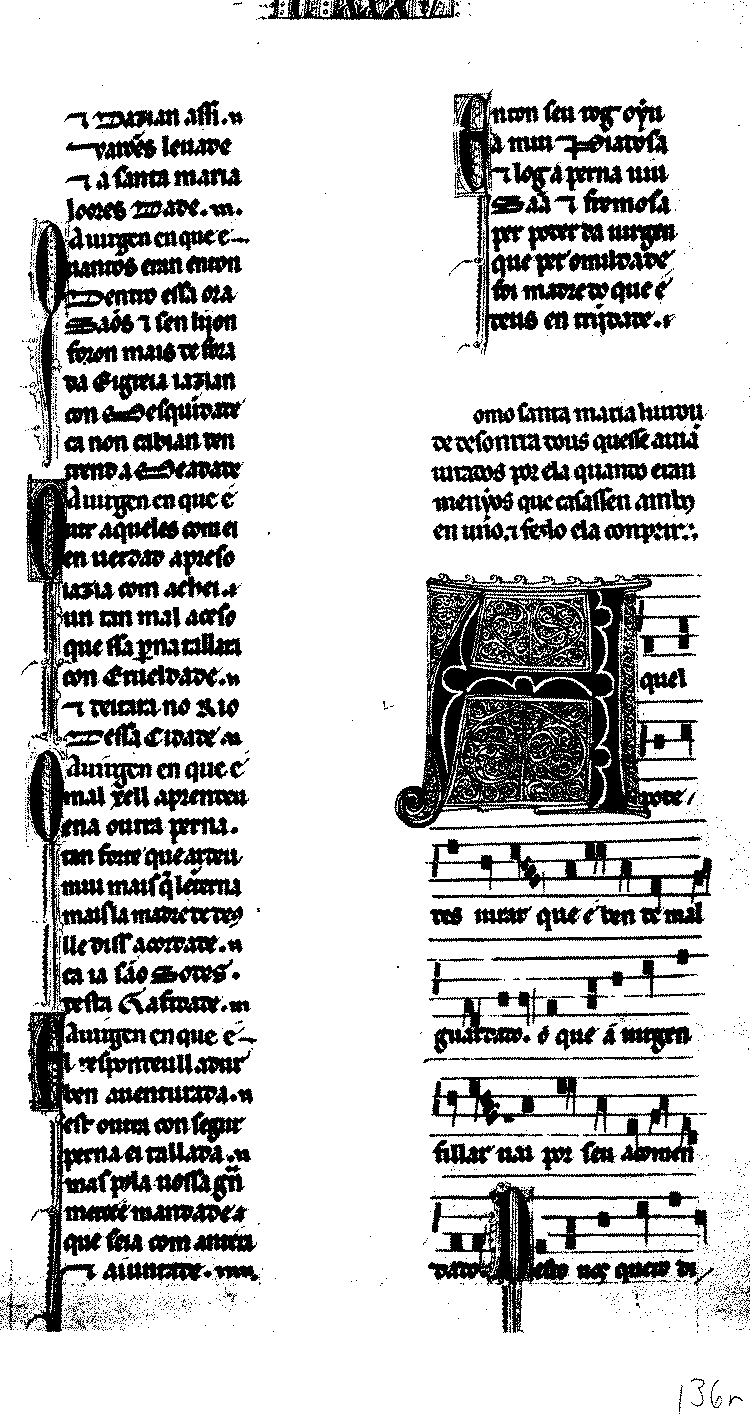 ⁊ dizian assi.
varões leuade
⁊ a santa maria
loores dade.
A uirgen en que e
Quantos eran enton
dentro essa ora
Sãos ⁊ sen lijon
foron mais de fora
da Eigreia iazian
con desquidade
ca non cabian den
tendo a Meadade
A uirgen en que e
Entr aqueles com ei
en uerdad apreso
iazia com achei.
un tan mal aceso
que ssa pna tallara
con Crueldade.
⁊ deitara no Rio
dessa Cidade
A uirgen en que e
O mal xell aprendeu
ena outra perna.
tan forte que ardeu
muu mais q̃ lēterna
mais la madre de de9
lle diss acordade.
ca ia são Sodes.
desta Gafidade.
A uirgen en que e
El respondeull auer
ben auenturada.
est outra con segur
perna ei tallada.
mas pola uossa grã
mercee mandade a
que seia com antira
⁊ aiuntade.
Enton seu rogo oyu
a mui Piadosa
⁊ logo a perna uiu
Sãa ⁊ fremosa
per poder da uirgen
que per omildade
foi madre do que e
deus en trijdade.
omo santa maria liurou
de desonrra dous quesse auiã
iurados por ela quando eran
menỹos que casassen anbos
en uno. ⁊ fezlo ela conprir.
Aquel
pode /
des iurar que e ben de mal
guardado. o que á uirgen
fillar uai por seu acomen
dado. Desto uos quero di
136r